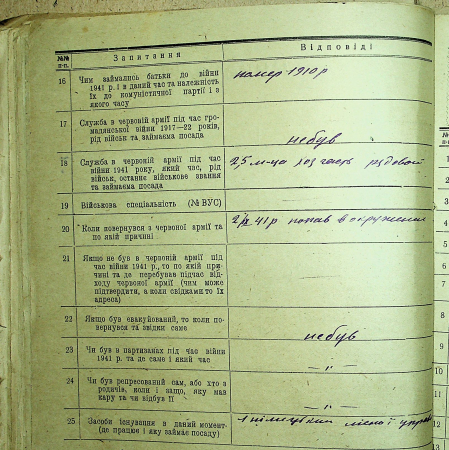 №№ п-п.
Запитання
Відповіді
16
Чим займались батьки до війни
1941 р. і в даний час та належність
їх до комуністичної партії і з
якого часу
помер 1910 р
17
Служба в червоній армії під час гро-
мадянської війни 1917—22 років,
рід військ та займаєма посада
не був
18
Служба в червоній армії під час
війни 1941 року, який час, рід
військ, останнє військове звання
та займаєма посада
2,5 м-ца часть рядовой
19
Військова спеціальність (№ ВУС)
20
Коли повернувся з червоної армії та
по якій причині
41 р попав в окружение
21
Якщо не був в червоній армії під
час війни 1941 р., то по якій при-
чині та де перебував підчас від-
ходу червоної армії (чим може
підтвердити, а коли свідками то їх
адреса)
22
Якщо був евакуйований, то коли по-
вернувся та звідки саме
не був
23
Чи був в партизанах під час війни
1941 р. та де саме і який час
— „ —
24
Чи був репресований сам, або хто з
родичів, коли і защо, яку мав
кару та чи відбув її
— „ —
25
Засоби існування в даний момент
(де працює і яку займає посаду)